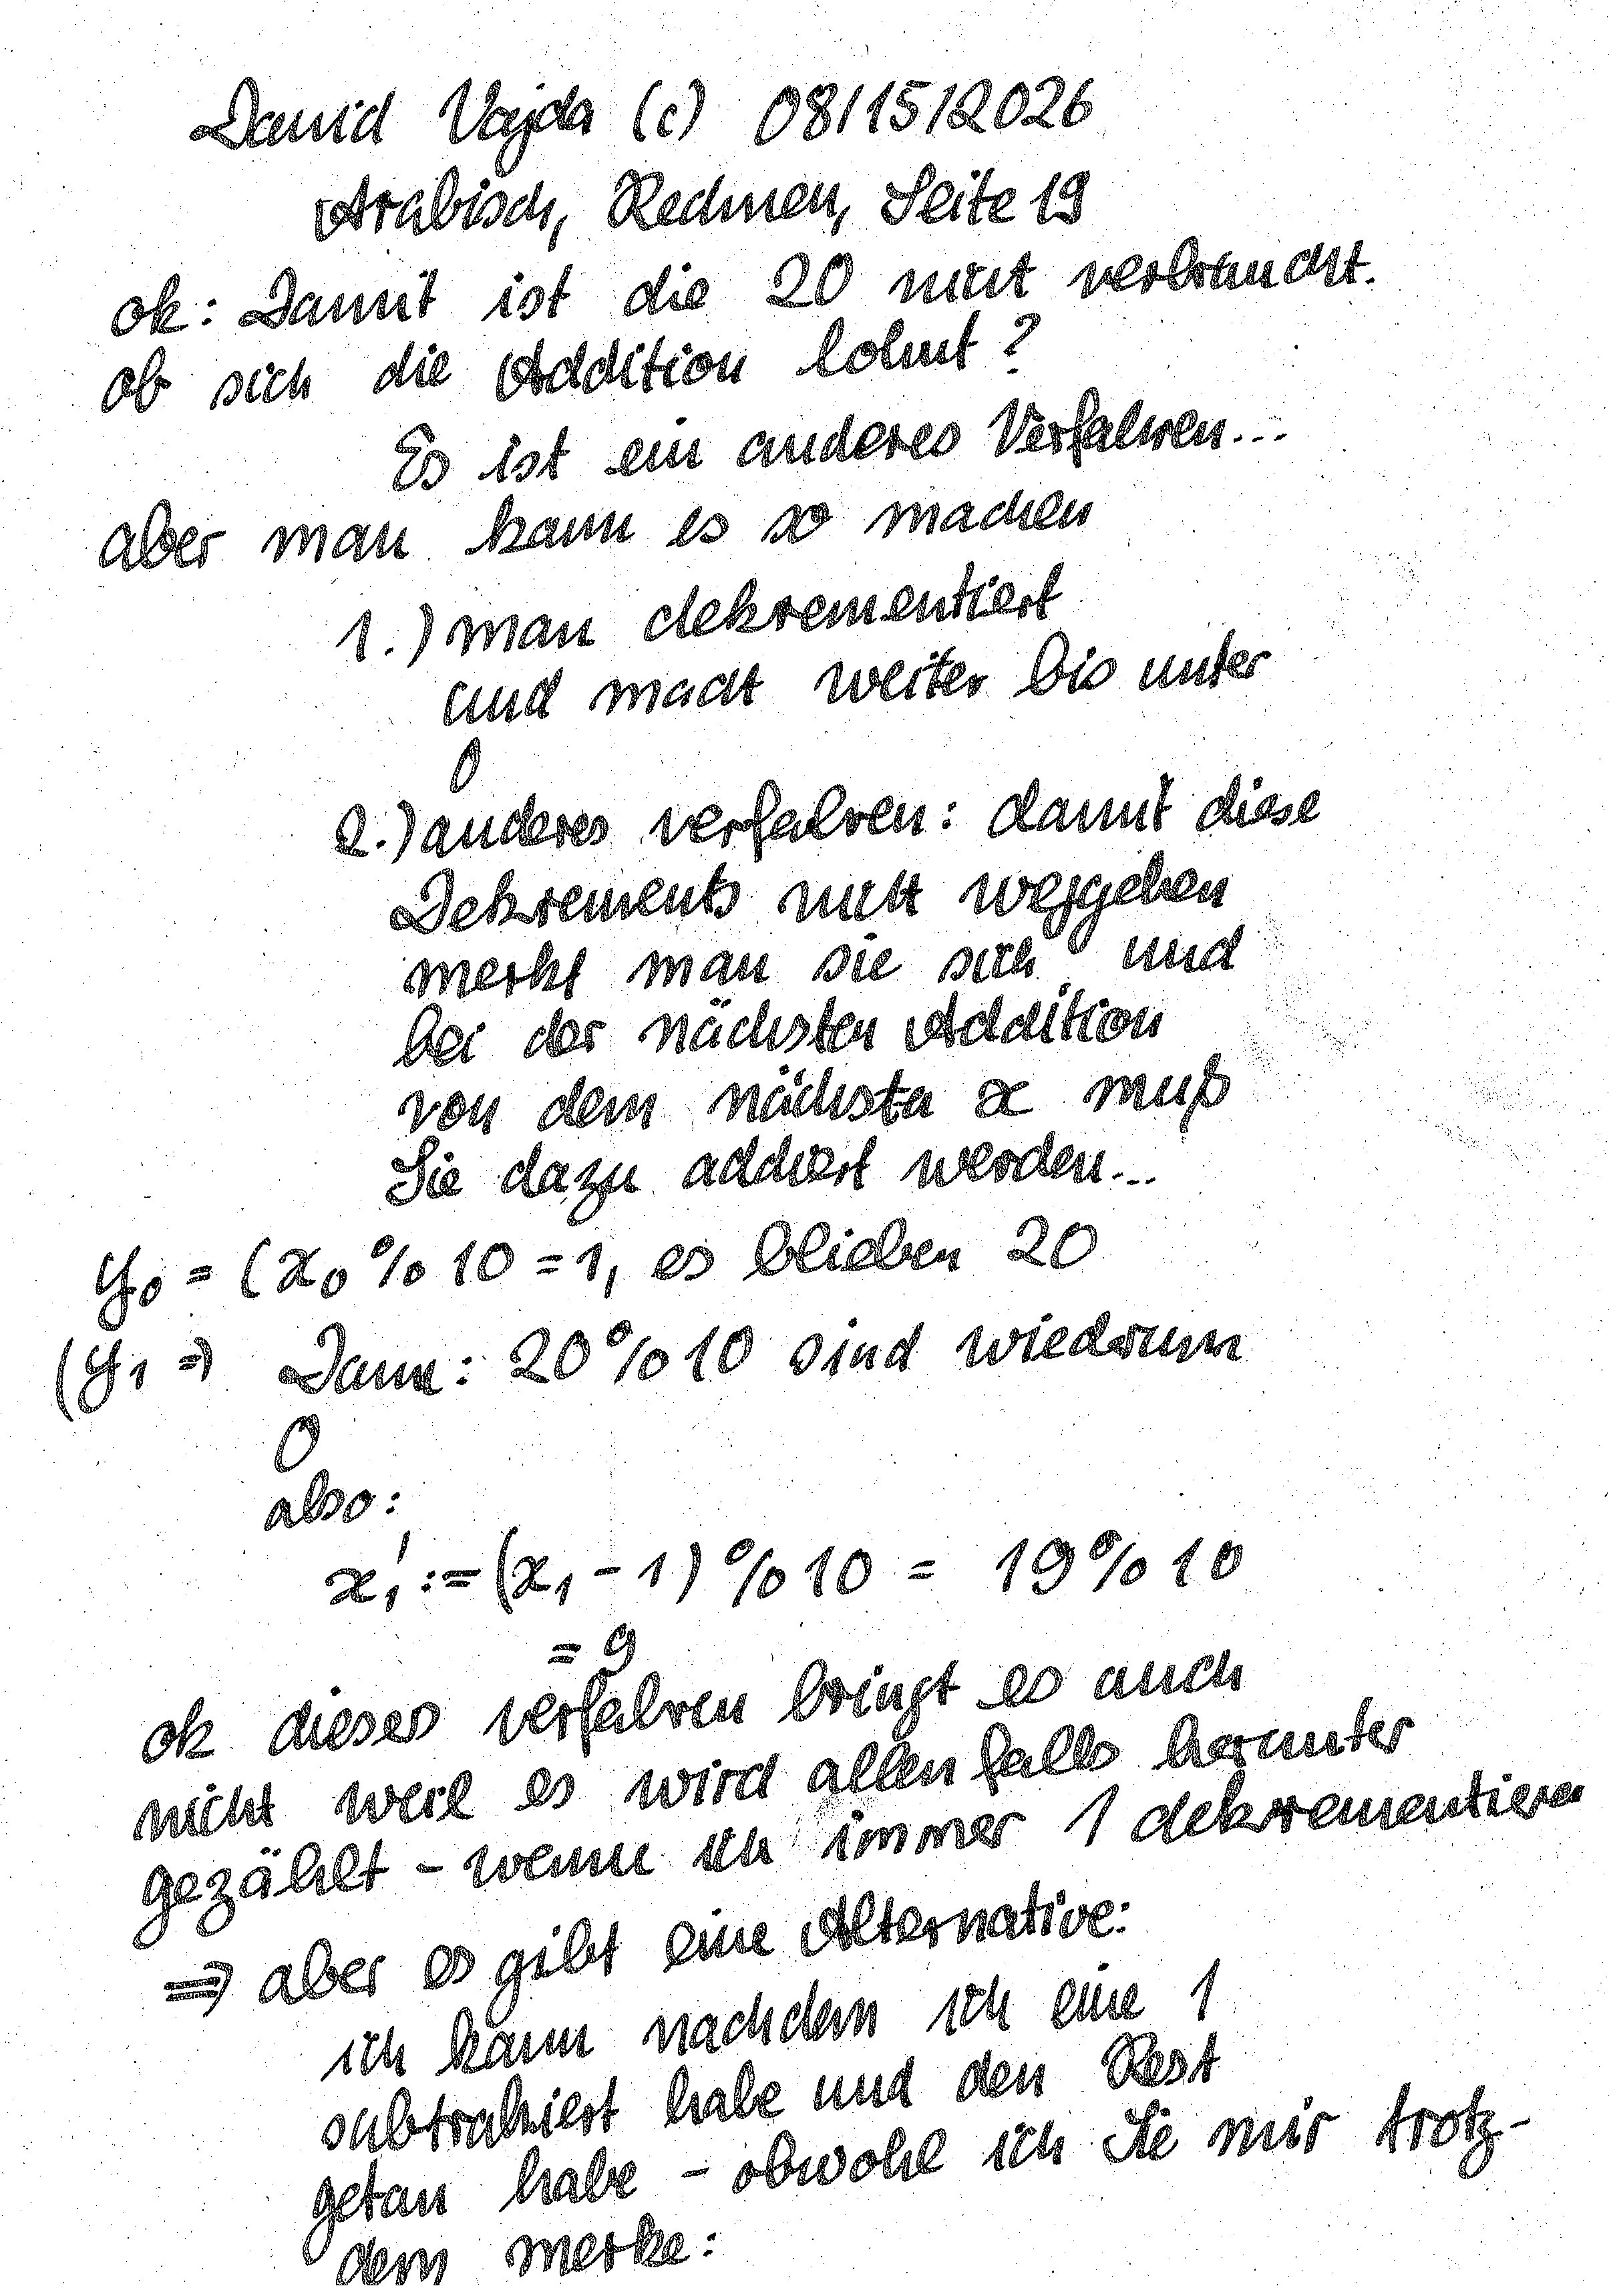 David Vajda (c) 08/15/2026
Arabisch, Rechnen, Seite 19
ok: Damit ist die 20 nicht verbraucht.
ob sich die Addition lohnt?
Es ist ein anderes Verfahren...
aber man kann es so machen
1.) man dekrementiert
und macht weiter bis unter
0
2.) anderes verfahren: damit diese
Dekrements nicht weggehen
merkt man sie sich und
bei der nächsten Addition
von dem nächsten x muß
Sie dazu addiert werden...
y₀ = (x₀ % 10 = 1, es blieben 20
(y₁ ⇒ Dann: 20 % 10 sind wiederum
0
also:
x₁' := (x₁ - 1) % 10 = 19 % 10
= 9
ok dieses verfahren bringt es auch
nicht weil es wird allenfalls herunter
gezählt - wenn ich immer 1 dekrementiere
⇒ aber es gibt eine Alternative:
ich kann nachdem ich eine 1
subtrahiert habe und den Rest
getan habe - obwohl ich Sie mir trotz-
dem merke: